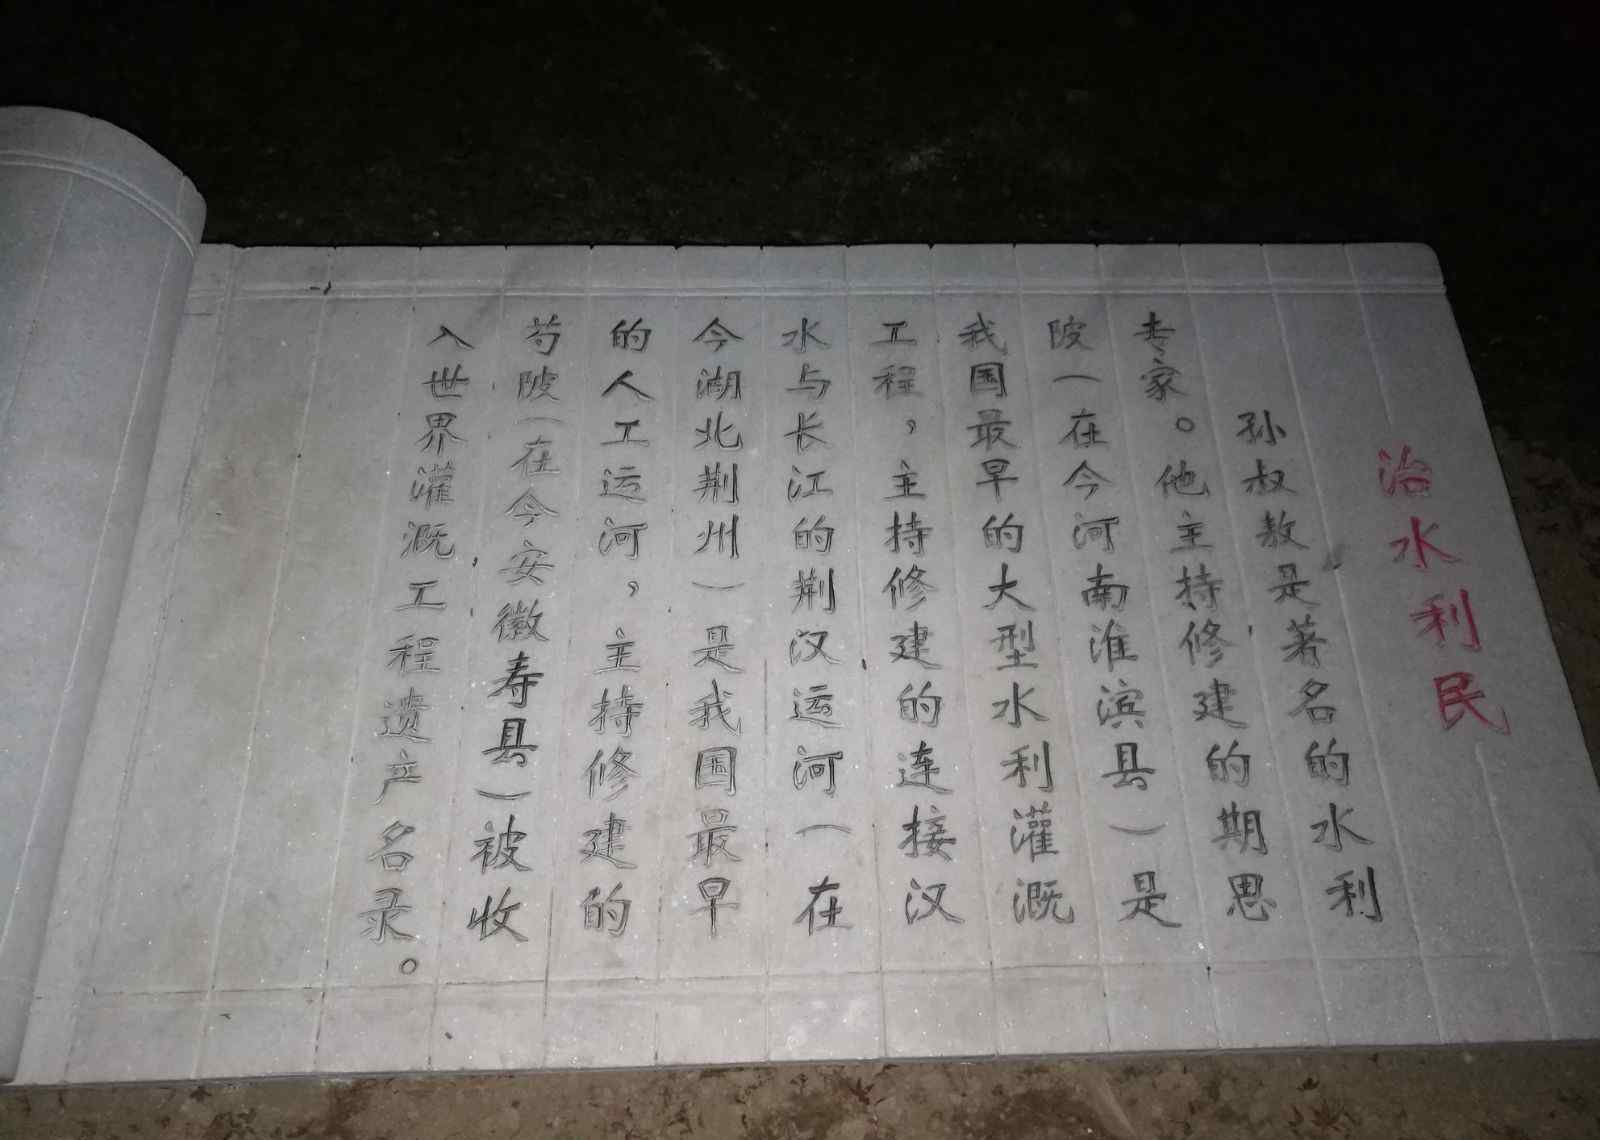 治水利民
孙叔敖是著名的水利
专家。他主持修建的期思
陂(在今河南淮滨县)是
我国最早的大型水利灌溉
工程，主持修建的连接汉
水与长江的荆汉运河(在
今湖北荆州)是我国最早
的人工运河，主持修建的
芍陂(在今安徽寿县)被收
入世界灌溉工程遗产名录。